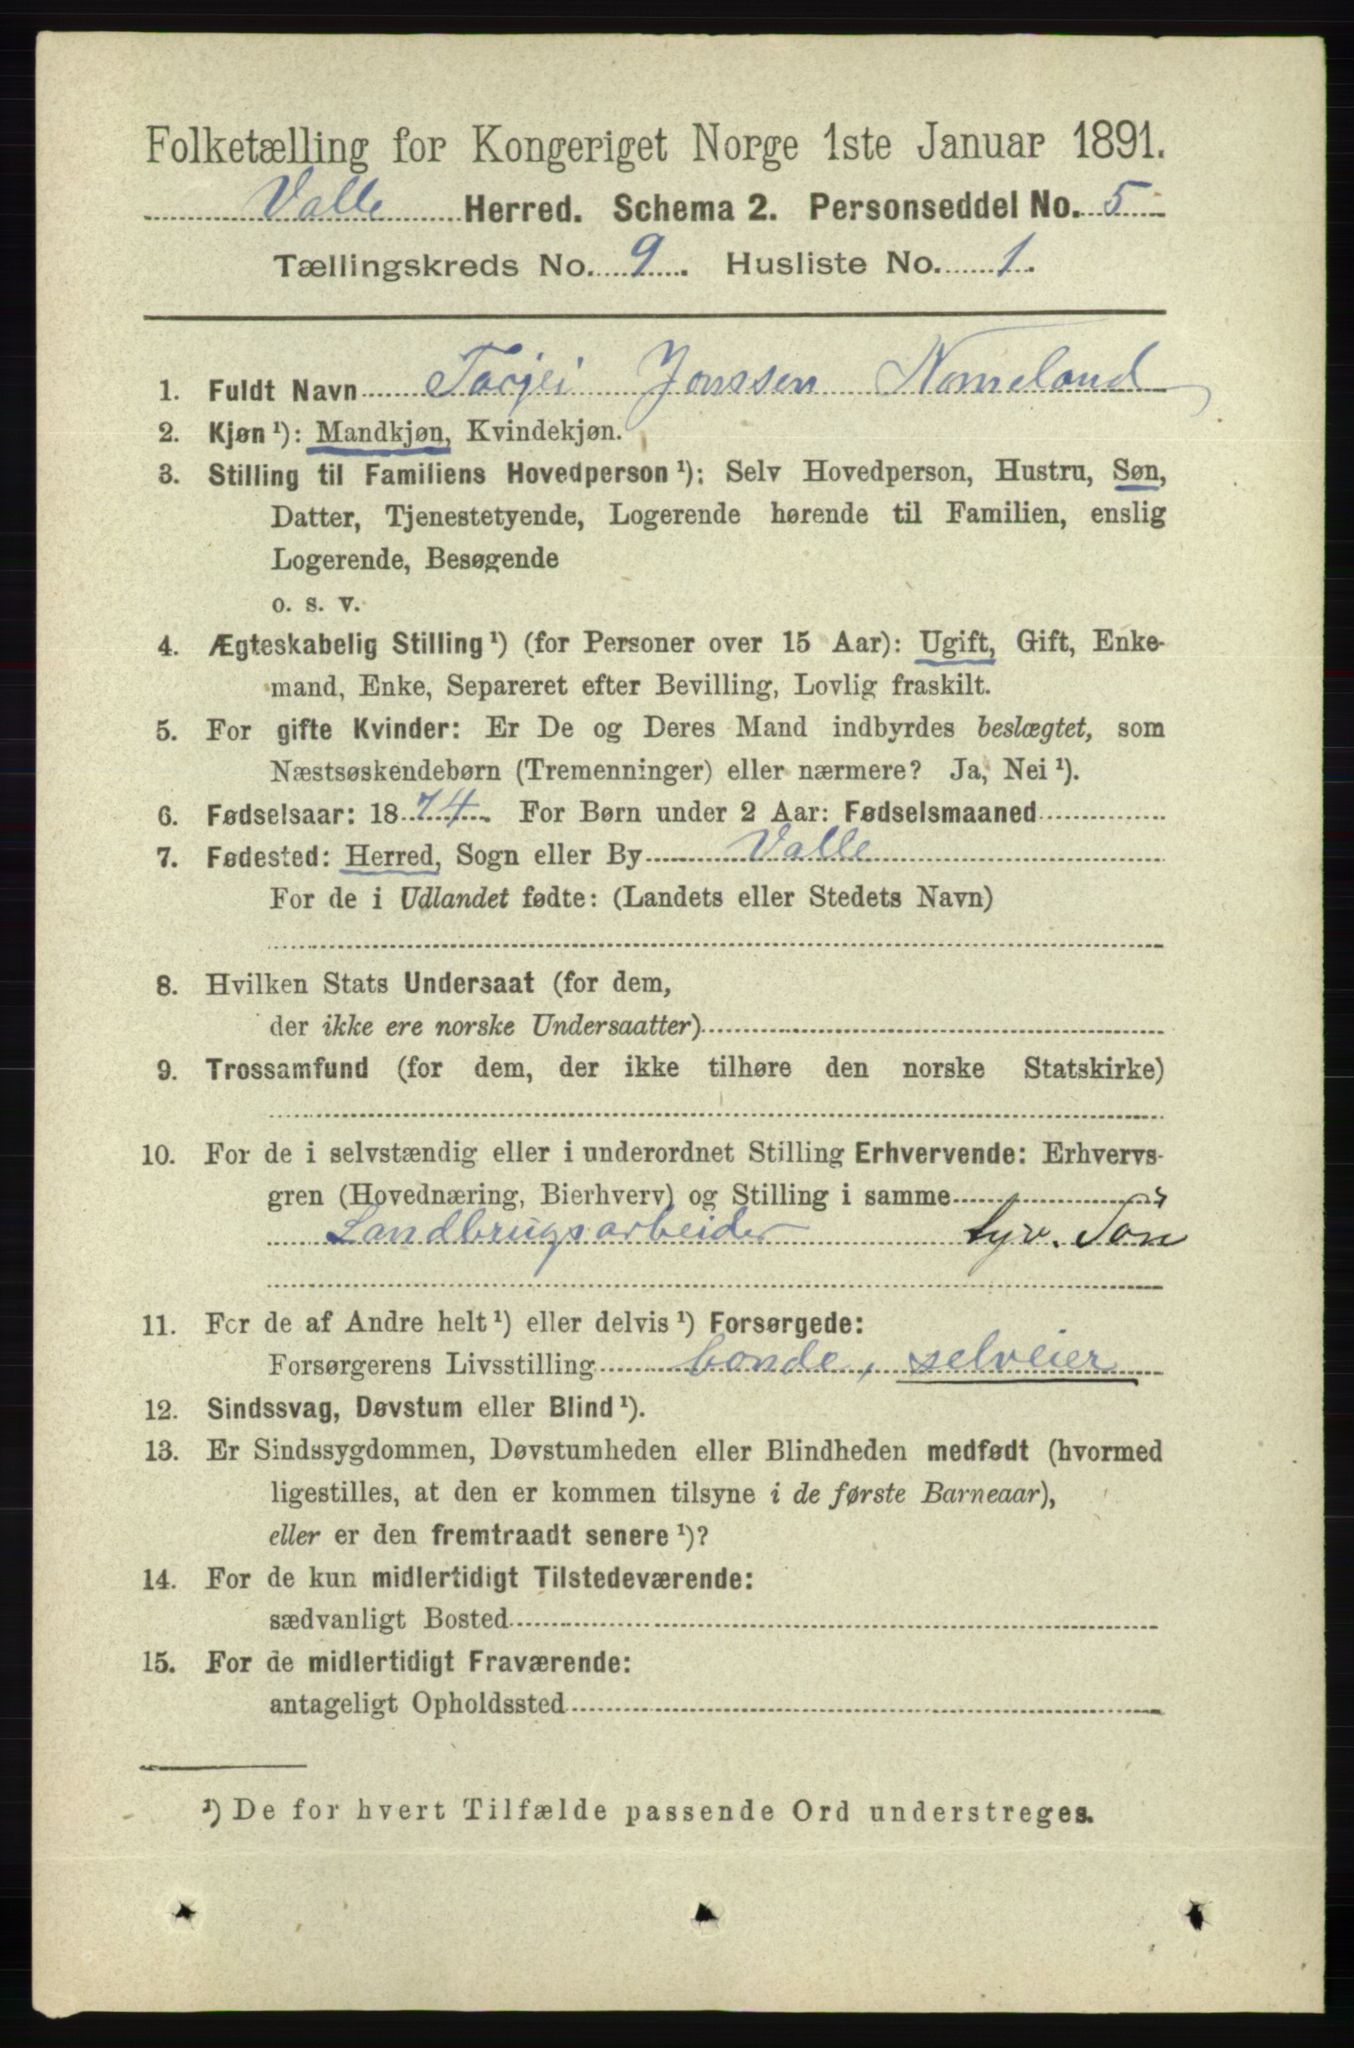 Folketælling for Kongeriget Norge 1ste Januar 1891.
Valle Herred. Schema 2. Personseddel No. 5
Tællingskreds No. 9. Husliste No. 1.
1. Fuldt Navn Tarjei Jonssen Nomeland
2. Kjøn ¹): Mandkjøn, Kvindekjøn.
3. Stilling til Familiens Hovedperson ¹): Selv Hovedperson, Hustru, Søn,
Datter, Tjenestetyende, Logerende hørende til Familien, enslig
Logerende, Besøgende
o. s. v.
4. Ægteskabelig Stilling ¹) (for Personer over 15 Aar): Ugift, Gift, Enke-
mand, Enke, Separeret efter Bevilling, Lovlig fraskilt.
5. For gifte Kvinder: Er De og Deres Mand indbyrdes beslægtet, som
Næstsøskendebørn (Tremenninger) eller nærmere? Ja, Nei ¹).
6. Fødselsaar: 1874. For Børn under 2 Aar: Fødselsmaaned
7. Fødested: Herred, Sogn eller By Valle
For de i Udlandet fødte: (Landets eller Stedets Navn)
8. Hvilken Stats Undersaat (for dem,
der ikke ere norske Undersaatter)
9. Trossamfund (for dem, der ikke tilhøre den norske Statskirke)
10. For de i selvstændig eller i underordnet Stilling Erhvervende: Erhvervs-
gren (Hovednæring, Bierhverv) og Stilling i samme
Landbrugsarbeider Gjv. Søn
11. For de af Andre helt ¹) eller delvis ¹) Forsørgede:
Forsørgerens Livsstilling bonde, selveier
12. Sindssvag, Døvstum eller Blind ¹).
13. Er Sindssygdommen, Døvstumheden eller Blindheden medfødt (hvormed
ligestilles, at den er kommen tilsyne i de første Barneaar),
eller er den fremtraadt senere ¹)?
14. For de kun midlertidigt Tilstedeværende:
sædvanligt Bosted
15. For de midlertidigt Fraværende:
antageligt Opholdssted
¹) De for hvert Tilfælde passende Ord understreges.